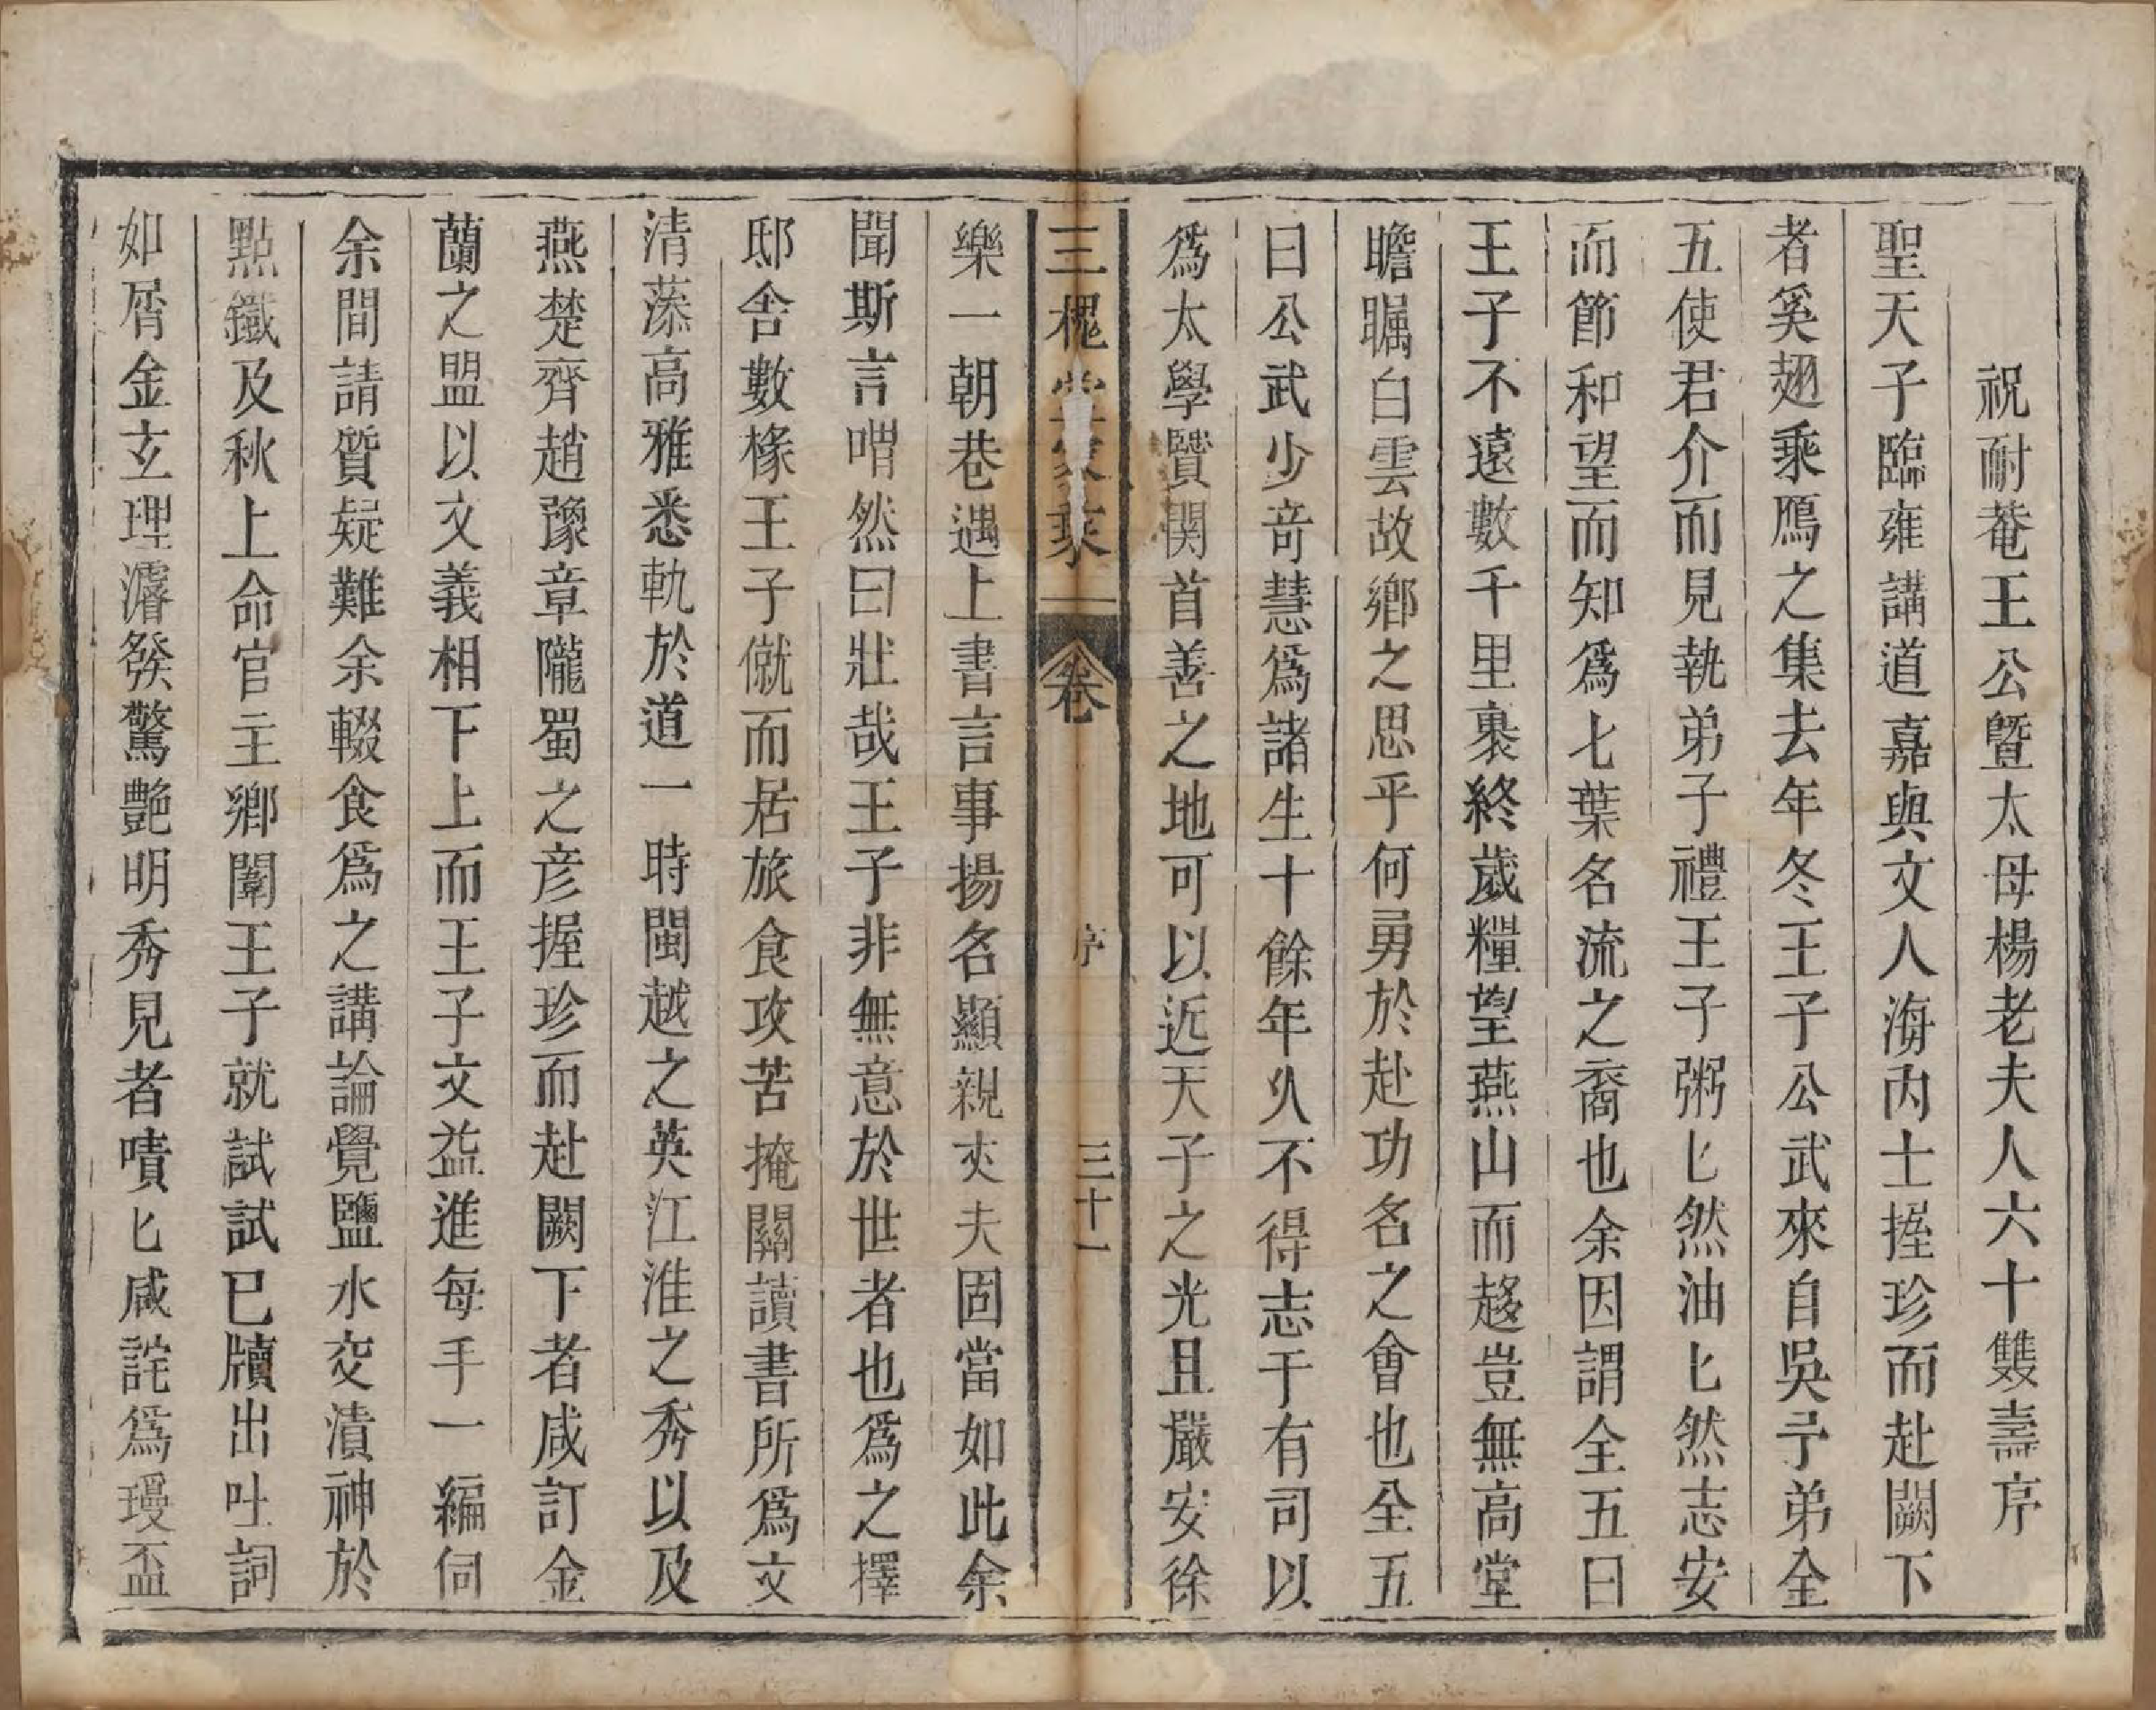 祝耐菴王公曁太母楊老夫人六十雙壽序
聖天子臨雍講道嘉與文人海內士握珍而赴闕下
者奚翅乘鴈之集去年冬王子公武來自吳予弟全
五使君介而見執弟子禮王子粥匕然油匕然志安
而節和望而知爲七葉名流之裔也余因謂全五曰
王子不遠數千里裹終歲糧望燕山而趍豈無高堂
瞻矚白雲故鄉之思乎何勇於赴功名之會也全五
曰公武少奇慧爲諸生十餘年久不得志于有司以
爲太學賢関首善之地可以近天子之光且嚴安徐
三槐堂家乘 卷 序 三十一
樂一朝巷遇上書言事揚名顯親丈夫固當如此余
聞斯言喟然曰壯哉王子非無意於世者也爲之擇
邸舍數椽王子僦而居旅食攻苦掩關讀書所爲文
清藻高雅悉軌於道一時閩越之英江淮之秀以及
燕楚齊趙豫章隴蜀之彥握珍而赴闕下者咸訂金
蘭之盟以文義相下上而王子文益進每手一編伺
余間請質疑難余輟食爲之講論覺鹽水交漬神於
點鐵及秋上命官主鄉闈王子就試試已牘出吐詞
如屑金玄理濬發驚艷明秀見者嘖匕咸詫爲瑷盃